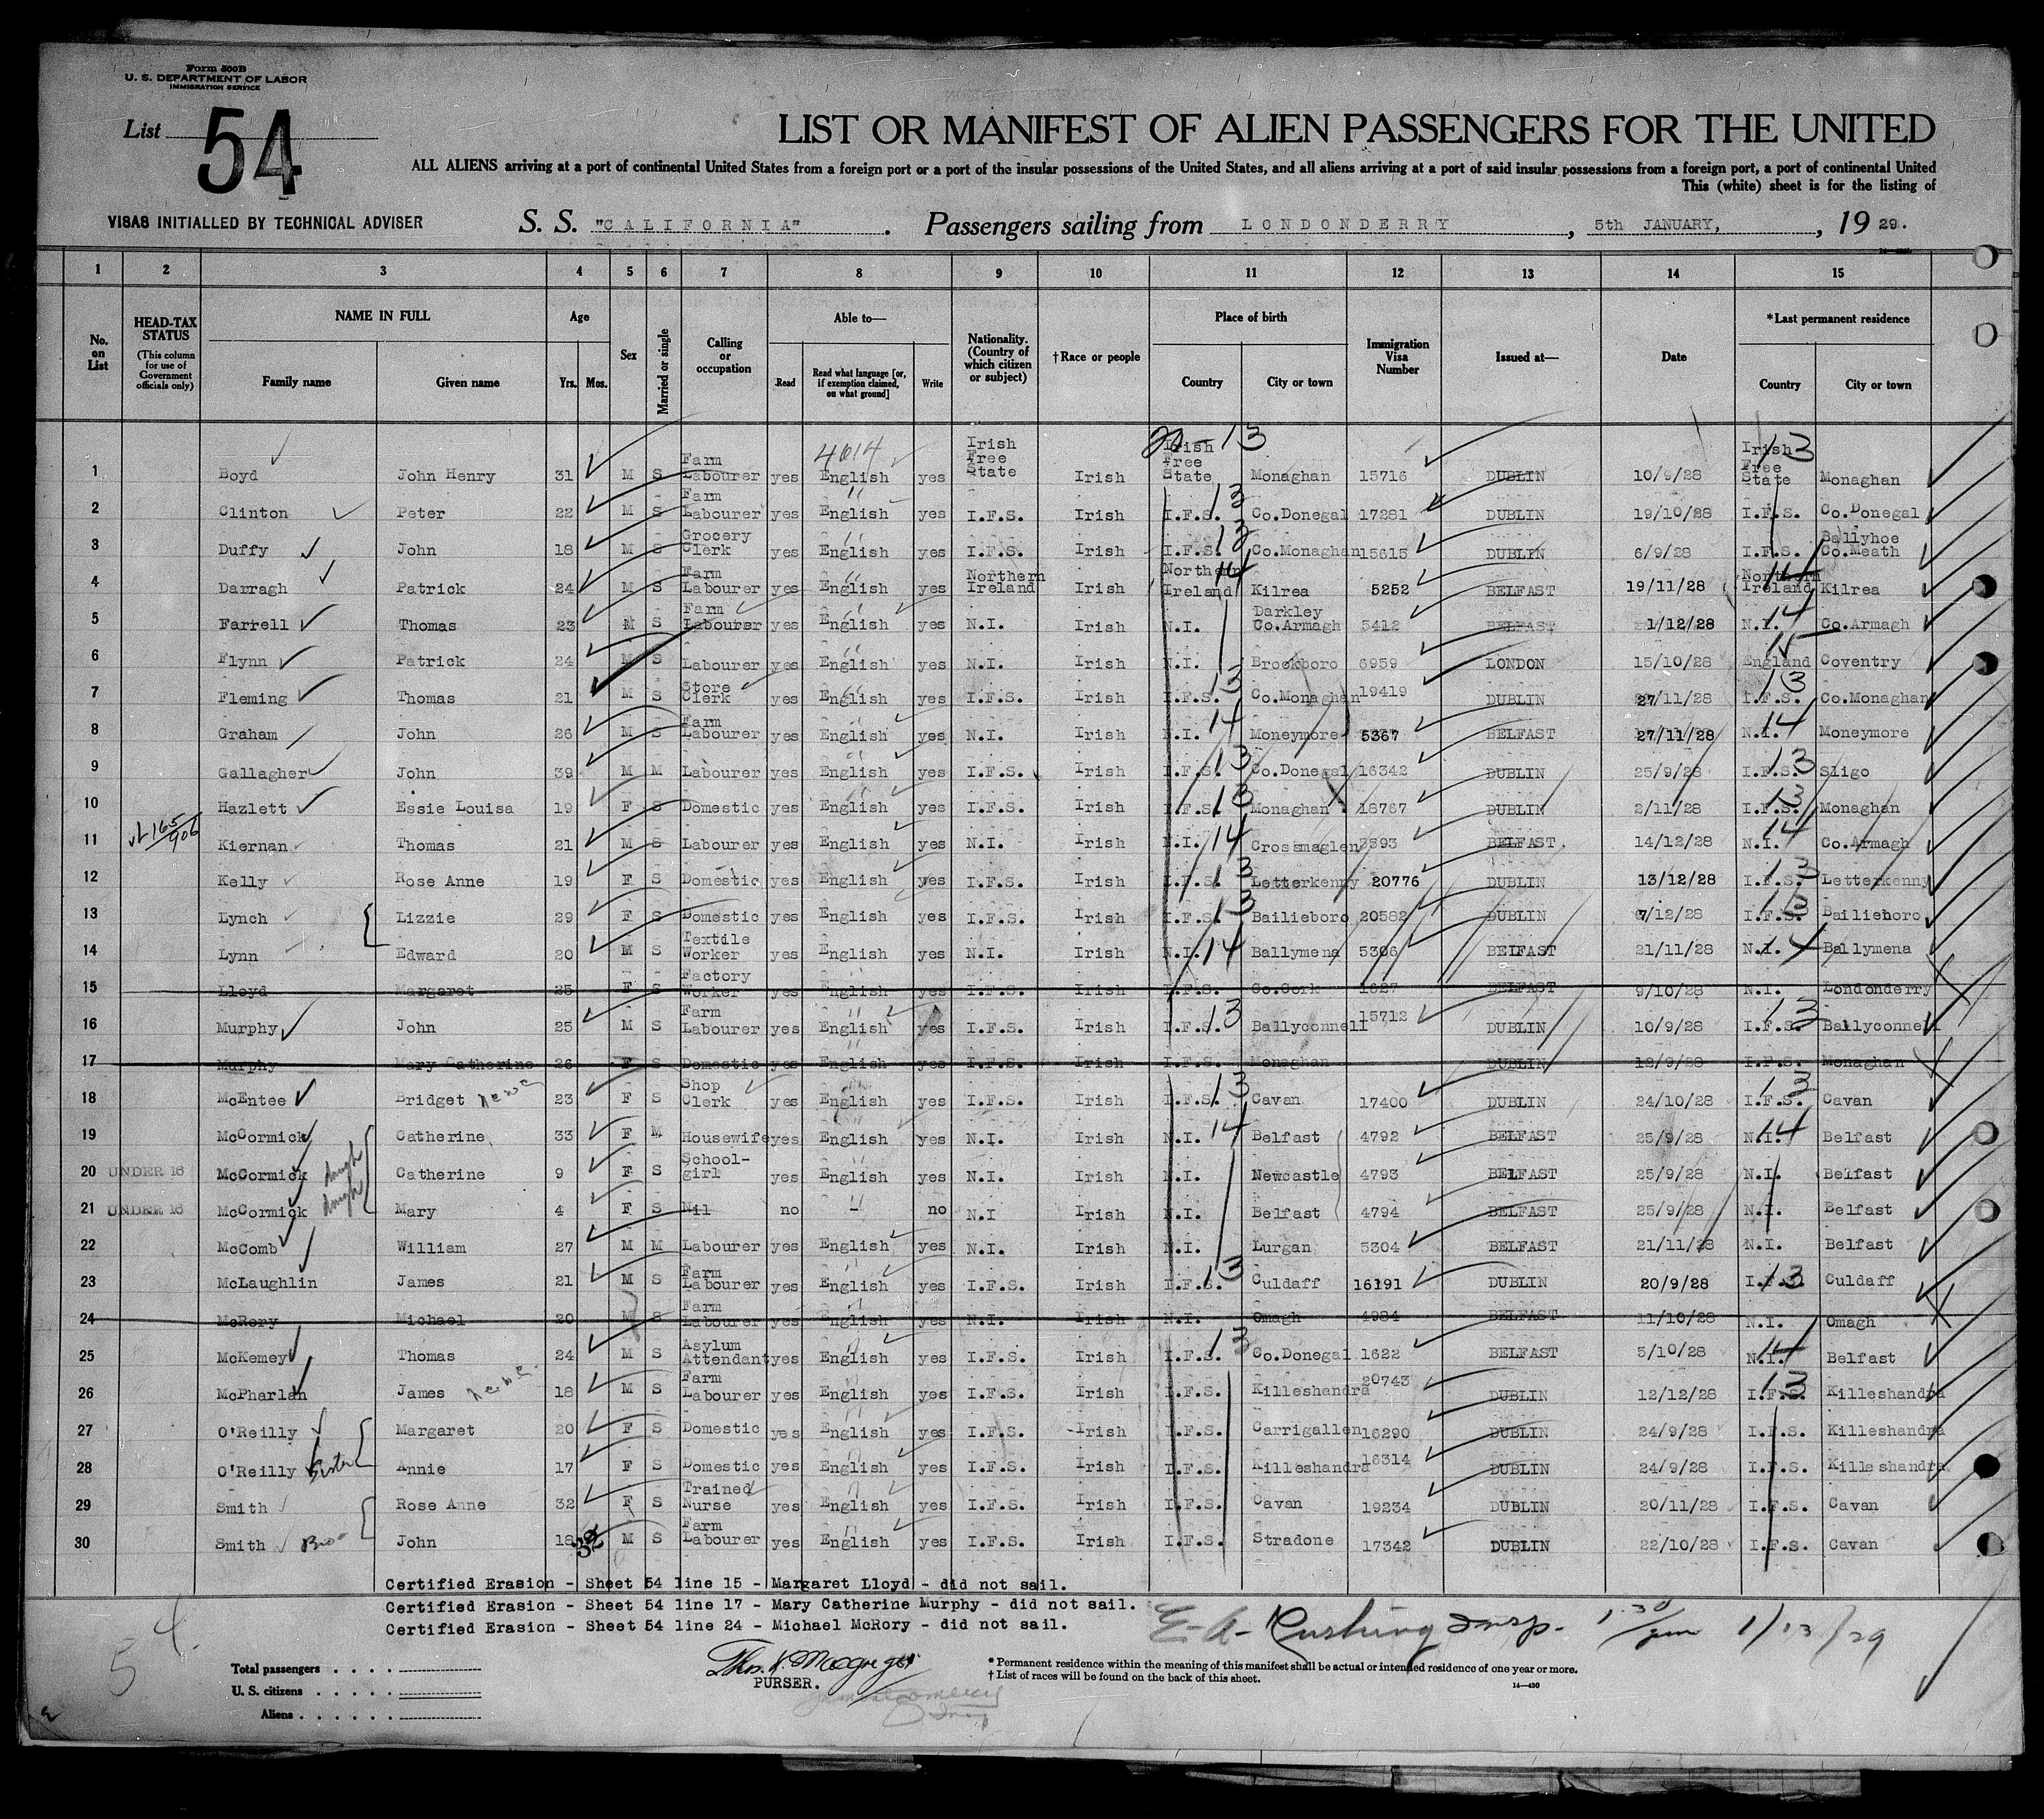 Form 500B
U. S. DEPARTMENT OF LABOR
IMMIGRATION SERVICE
List 54
LIST OR MANIFEST OF ALIEN PASSENGERS FOR THE UNITED
ALL ALIENS arriving at a port of continental United States from a foreign port or a port of the insular possessions of the United States, and all aliens arriving at a port of said insular possessions from a foreign port, a port of continental United
This (white) sheet is for the listing of
VISAS INITIALLED BY TECHNICAL ADVISER S. S. "CALIFORNIA" . Passengers sailing from LONDONDERRY , 5th JANUARY, , 19 29.
1 2 3 4 5 6 7 8 9 10 11 12 13 14 15
No. on List HEAD-TAX STATUS (This column for use of Government officials only) NAME IN FULL Family name Given name Age Yrs. Mos. Sex Married or single Calling or occupation Able to— Read Read what language [or, if exemption claimed, on what ground] Write Nationality. (Country of which citizen or subject) †Race or people Place of birth Country City or town Immigration Visa Number Issued at— Date *Last permanent residence Country City or town
1 Boyd John Henry 31 M S Farm Labourer yes English yes Irish Free State Irish Irish Free State Monaghan 15716 DUBLIN 10/9/28 Irish Free State Monaghan
2 Clinton Peter 22 M S Farm Labourer yes English yes I.F.S. Irish I.F.S. 13 Co.Donegal 17281 DUBLIN 19/10/28 I.F.S. Co.Donegal
3 Duffy John 18 M S Grocery Clerk yes English yes I.F.S. Irish I.F.S. 13 Co.Monaghan 15615 DUBLIN 6/9/28 I.F.S. Ballyhoe Co.Meath
4 Darragh Patrick 24 M S Farm Labourer yes English yes Northern Ireland Irish Northern Ireland 14 Kilrea 5252 BELFAST 19/11/28 Northern Ireland 14 Kilrea
5 Farrell Thomas 23 M S Farm Labourer yes English yes N.I. Irish N.I. Darkley Co.Armagh 5412 BELFAST 1/12/28 N.I. 14 Co.Armagh
6 Flynn Patrick 24 M S Labourer yes English yes N.I. Irish N.I. Brookboro 6959 LONDON 15/10/28 England 15 Coventry
7 Fleming Thomas 21 M S Store Clerk yes English yes I.F.S. Irish I.F.S. 13 Co.Monaghan 19419 DUBLIN 27/11/28 I.F.S. 13 Co.Monaghan
8 Graham John 26 M S Farm Labourer yes English yes N.I. Irish N.I. 14 Moneymore 5367 BELFAST 27/11/28 N.I. 14 Moneymore
9 Gallagher John 39 M M Labourer yes English yes I.F.S. Irish I.F.S. 13 Co.Donegal 16342 DUBLIN 25/9/28 I.F.S. 13 Sligo
10 Hazlett Essie Louisa 19 F S Domestic yes English yes I.F.S. Irish I.F.S. 13 Monaghan 18767 DUBLIN 2/11/28 I.F.S. 13 Monaghan
11 Kiernan Thomas 21 M S Labourer yes English yes N.I. Irish N.I. 14 Crossmaglen 5593 BELFAST. 14/12/28 N.I. 14 Co.Armagh
12 Kelly Rose Anne 19 F S Domestic yes English yes I.F.S. Irish I.F.S. 13 Letterkenny 20776 DUBLIN 13/12/28 I.F.S. 13 Letterkenny
13 Lynch Lizzie 29 F S Domestic yes English yes I.F.S. Irish I.F.S. 13 Bailieboro 20582 DUBLIN 7/12/28 I.F.S. 13 Bailieboro
14 Lynn Edward 20 M S Textile Worker yes English yes N.I. Irish N.I. 14 Ballymena 5306 BELFAST 21/11/28 N.I. 14 Ballymena
15 Lloyd Margaret 25 F S Factory Worker yes English yes I.F.S. Irish I.F.S. Co.Cork 1627 BELFAST 9/10/28 N.I. Londonderry
16 Murphy John 25 M S Farm Labourer yes English yes I.F.S. Irish I.F.S. 13 Ballyconnell 15712 DUBLIN 10/9/28 I.F.S. 13 Ballyconnell
17 Murphy Mary Catherine 26 F S Domestic yes English yes I.F.S. Irish I.F.S. Monaghan DUBLIN 12/9/28 I.F.S. Monaghan
18 McEntee Bridget 23 F S Shop Clerk yes English yes I.F.S. Irish I.F.S. 13 Cavan 17400 DUBLIN 24/10/28 I.F.S. 13 Cavan
19 McCormick Catherine 33 F M Housewife yes English yes N.I. Irish N.I. 14 Belfast 4792 BELFAST 25/9/28 N.I. 14 Belfast
20 UNDER 16 McCormick daugh Catherine 9 F S School-girl yes English yes N.I. Irish N.I. Newcastle 4793 BELFAST 25/9/28 N.I. Belfast
21 UNDER 16 McCormick daugh Mary 4 F S Nil no — no N.I Irish N.I. Belfast 4794 BELFAST 25/9/28 N.I. Belfast
22 McComb William 27 M M Labourer yes English yes N.I. Irish N.I. Lurgan 5304 BELFAST 21/11/28 N.I. Belfast
23 McLaughlin James 21 M S Farm Labourer yes English yes I.F.S. Irish I.F.S. 13 Culdaff 16191 DUBLIN 20/9/28 I.F.S. 13 Culdaff
24 McRory Michael 20 M S Farm Labourer yes English yes N.I. Irish N.I. Omagh 4984 BELFAST 11/10/28 N.I. Omagh
25 McKemey Thomas 24 M S Asylum Attendant yes English yes I.F.S. Irish I.F.S. 13 Co.Donegal 1622 BELFAST 5/10/28 N.I. 14 Belfast
26 McPharlan James 18 M S Farm Labourer yes English yes I.F.S. Irish I.F.S. Killeshandra 20743 DUBLIN 12/12/28 I.F.S. 13 Killeshandra
27 O'Reilly Margaret 20 F S Domestic yes English yes I.F.S. Irish I.F.S. Carrigallen 16290 DUBLIN 24/9/28 I.F.S. Killeshandra
28 O'Reilly Sister Annie 17 F S Domestic yes English yes I.F.S. Irish I.F.S. Killeshandra 16314 DUBLIN 24/9/28 I.F.S. Killeshandra
29 Smith Rose Anne 32 F S Trained Nurse yes English yes I.F.S. Irish I.F.S. Cavan 19234 DUBLIN 20/11/28 I.F.S. Cavan
30 Smith Bro- John 18 M S Farm Labourer yes English yes I.F.S. Irish I.F.S. Stradone 17342 DUBLIN 22/10/28 I.F.S. Cavan
Certified Erasion - Sheet 54 line 15 - Margaret Lloyd - did not sail.
Certified Erasion - Sheet 54 line 17 - Mary Catherine Murphy - did not sail.
Certified Erasion - Sheet 54 line 24 - Michael McRory - did not sail.
E- A- Rushing Insp. 1.30 pm 1/13/29
54.
Thos. K. McGregor
PURSER.
Total passengers
U. S. citizens
Aliens
* Permanent residence within the meaning of this manifest shall be actual or intended residence of one year or more.
† List of races will be found on the back of this sheet.
14—430